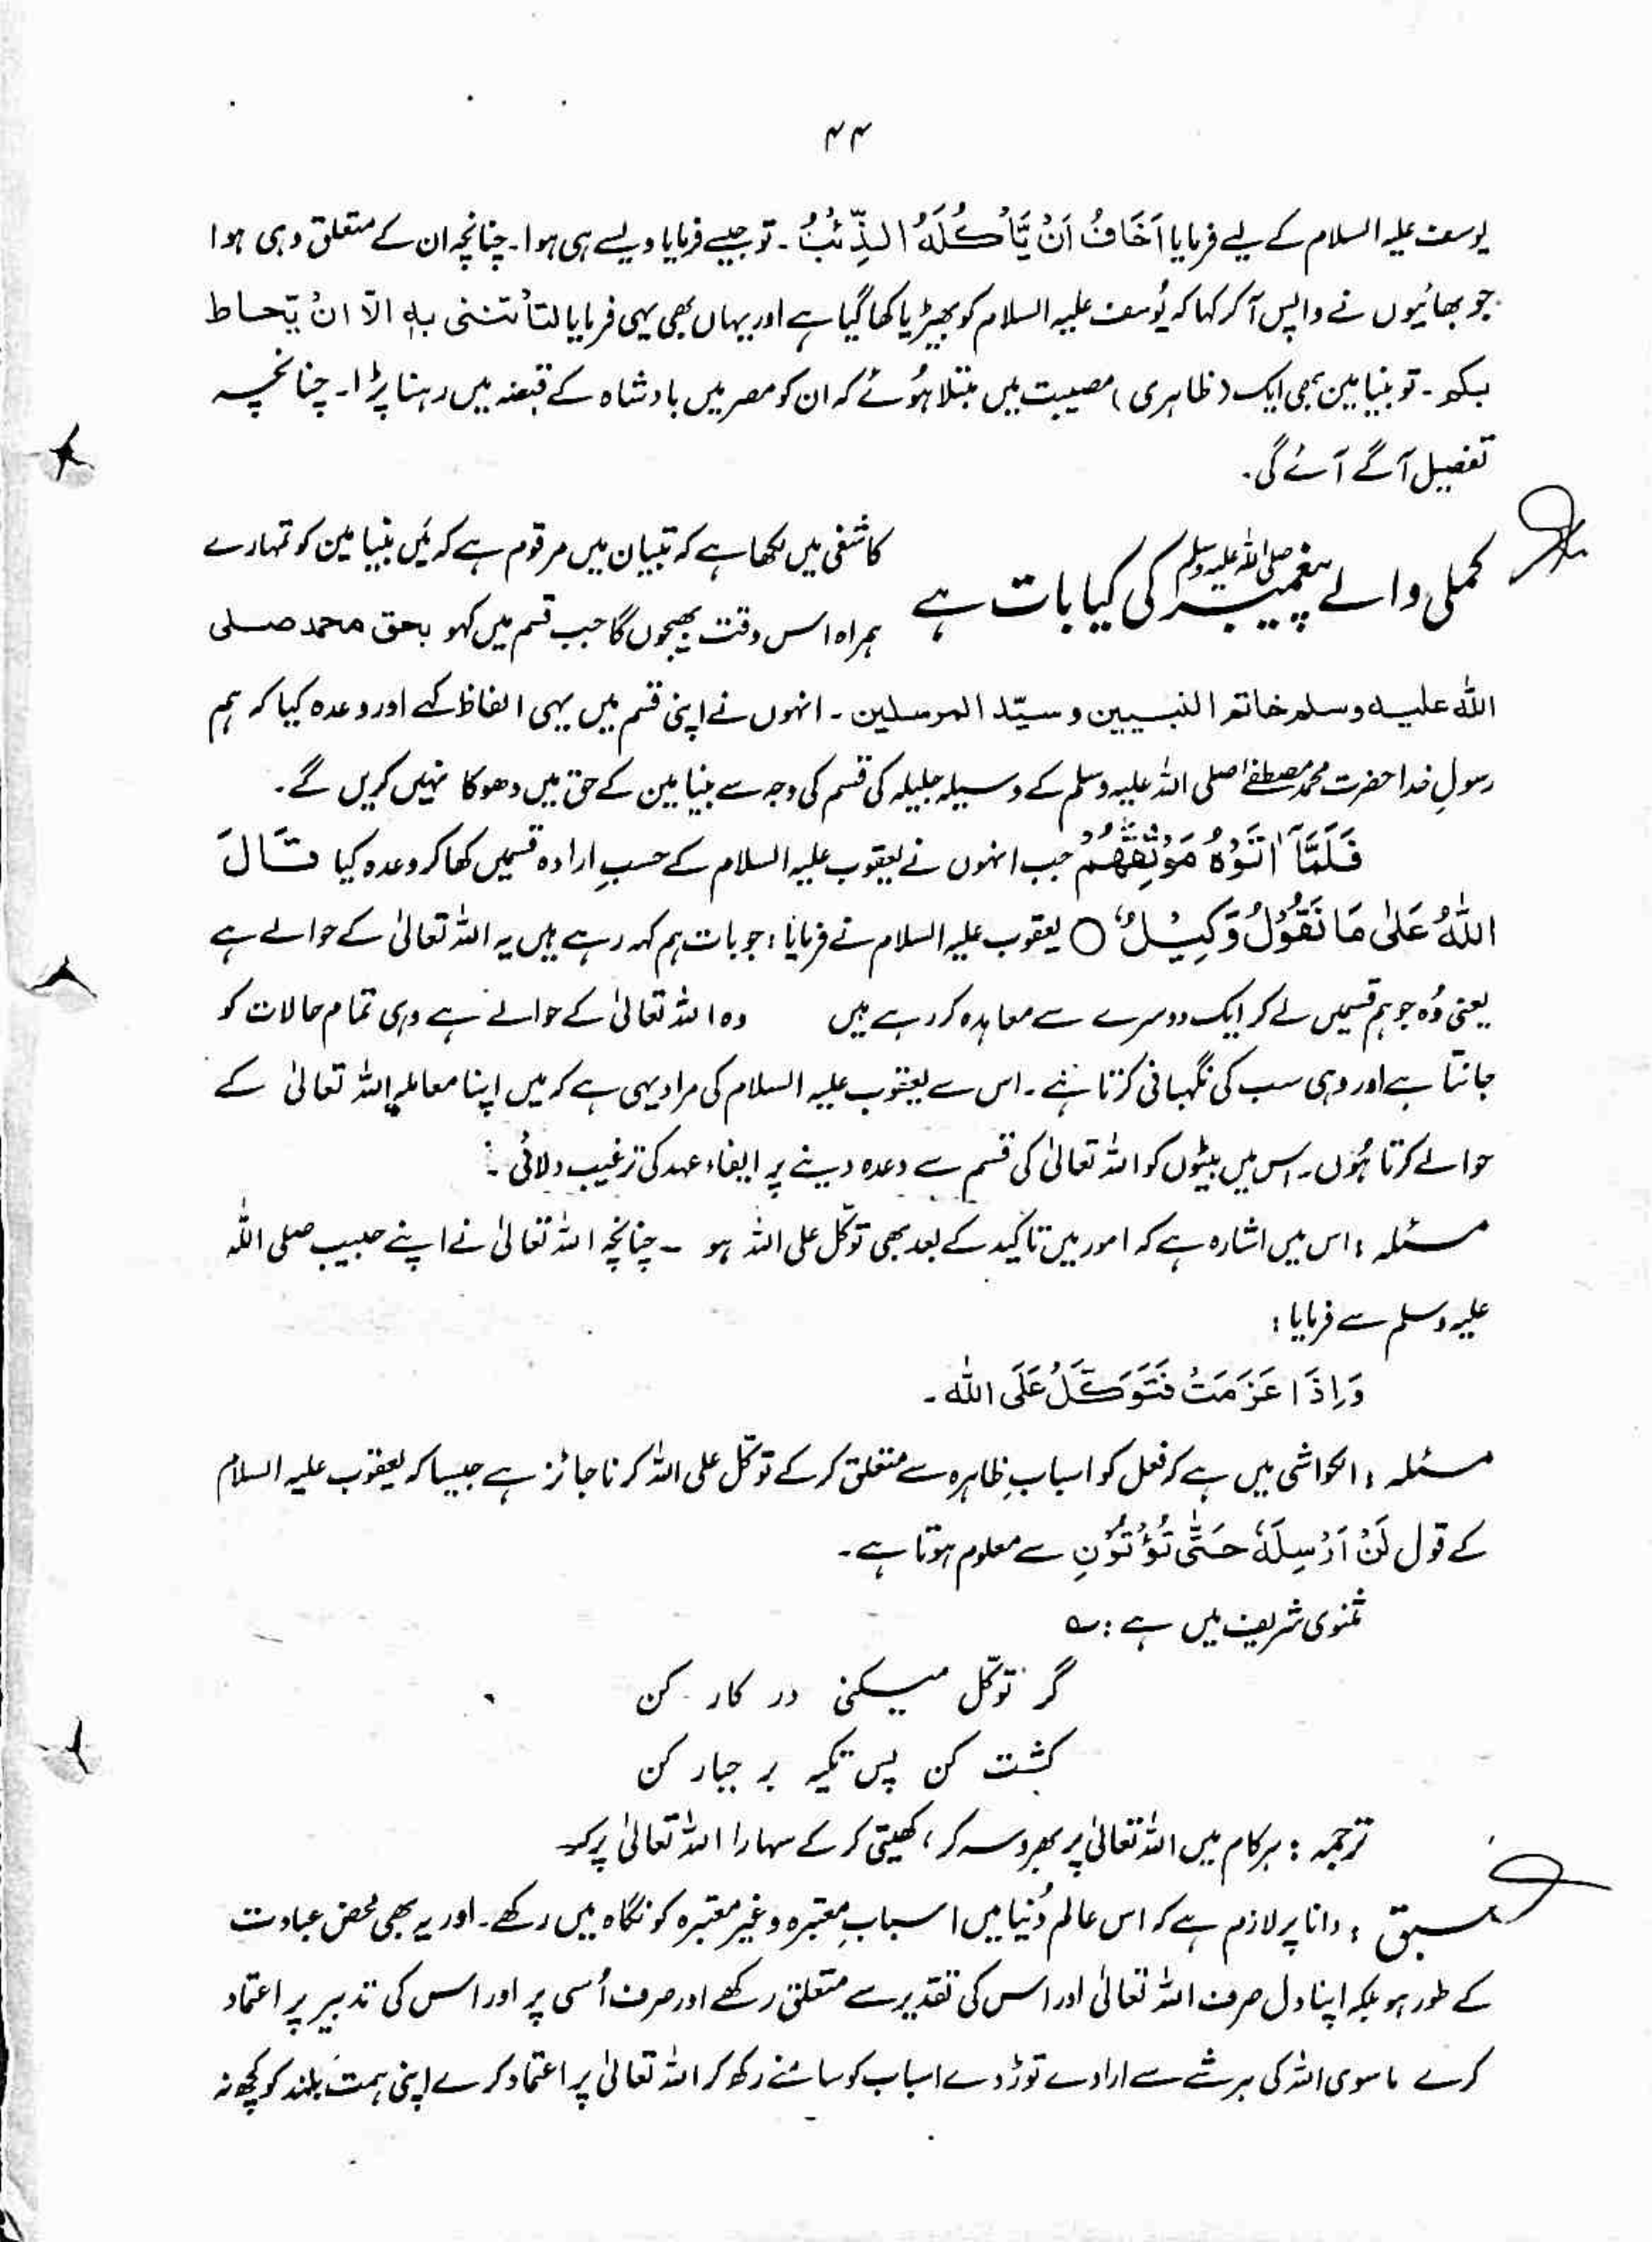 ۴۴
یوسف علیہ السلام کے لیے فرمایا اَخَافُ اَنْ یَّاْكُلَهُ الذِّئْبُ ۔ تو جیسے فرمایا ویسے ہی ہوا ۔ چنانچہ ان کے متعلق وہی ہوا
جو بھائیوں نے واپس آ کر کہا کہ یُوسف علیہ السلام کو بھیڑیا کھا گیا ہے اور یہاں بھی یہی فرمایا لتأتننی بہٖ الّا انْ یّحاط
بکم ۔ تو بنیامین بھی ایک (ظاہری) مصیبت میں مبتلا ہُوئے کہ ان کو مصر میں بادشاہ کے قبضہ میں رہنا پڑا ۔ چنانچہ
تفصیل آگے آئے گی ۔
کملی والے پیغمبر صلی اللہ علیہ وسلم کی کیا بات ہے
کاشفی میں لکھا ہے کہ تبیان میں مرقوم ہے کہ مَیں بنیامین کو تمہارے
ہمراہ اس وقت بھیجوں گا جب قسم میں کہو بحق محمد صلی
اللہ علیہ وسلم خاتم النبیین و سیّد المرسلین ۔ انہوں نے اپنی قسم میں یہی الفاظ کہے اور وعدہ کیا کہ ہم
رسولِ خدا حضرت محمد مصطفےٰ صلی اللہ علیہ وسلم کے وسیلہ جلیلہ کی قسم کی وجہ سے بنیامین کے حق میں دھوکا نہیں کریں گے ۔
فَلَمَّآ اٰتَوْهُ مَوْثِقَهُمْ جب انہوں نے یعقوب علیہ السلام کے حسبِ ارادہ قسمیں کھا کر وعدہ کیا قَالَ
اللّٰهُ عَلٰی مَا نَقُوْلُ وَكِیْلٌ ○ یعقوب علیہ السلام نے فرمایا : جو بات ہم کہہ رہے ہیں یہ اللہ تعالیٰ کے حوالے ہے
یعنی وُہ جو ہم قسمیں لے کر ایک دوسرے سے معاہدہ کر رہے ہیں وہ اللہ تعالیٰ کے حوالے ہے وہی تمام حالات کو
جانتا ہے اور وہی سب کی نگہبانی کرتا ہے ۔ اس سے یعقوب علیہ السلام کی مراد یہی ہے کہ میں اپنا معاملہ اللہ تعالیٰ کے
حوالے کرتا ہُوں ۔ اس میں بیٹوں کو اللہ تعالیٰ کی قسم سے وعدہ دینے پر ایفاء عہد کی ترغیب دلائی ۔
مسئلہ : اس میں اشارہ ہے کہ امور میں تاکید کے بعد بھی توکّل علی اللہ ہو ۔ چنانچہ اللہ تعالیٰ نے اپنے حبیب صلی اللہ
علیہ وسلم سے فرمایا :
وَاِذَا عَزَمْتَ فَتَوَكَّلْ عَلَی اللّٰه ۔
مسئلہ : الکواشی میں ہے کہ فعل کو اسبابِ ظاہرہ سے متعلق کر کے توکّل علی اللہ کرنا جائز ہے جیسا کہ یعقوب علیہ السلام
کے قول لَنْ اُرْسِلَهٗ حَتّٰی تُؤْتُوْنِ سے معلوم ہوتا ہے ۔
مثنوی شریف میں ہے : ؎
گر توکّل میکنی در کار کن
کشت کن پس تکیہ بر جبار کن
ترجمہ : ہر کام میں اللہ تعالیٰ پر بھروسہ کر ، کھیتی کر کے سہارا اللہ تعالیٰ پر کر
سبق : دانا پر لازم ہے کہ اس عالمِ دُنیا میں اسبابِ معتبرہ و غیر معتبرہ کو نگاہ میں رکھے ۔ اور یہ بھی محض عبادت
کے طور ہو بلکہ اپنا دل صرف اللہ تعالیٰ اور اس کی تقدیر سے متعلق رکھے اور صرف اُسی پر اور اس کی تدبیر پر اعتماد
کرے ماسوی اللہ کی ہر شے سے ارادے توڑ دے اسباب کو سامنے رکھ کر اللہ تعالیٰ پر اعتماد کرے اپنی ہمت بلند کو کچھ نہ